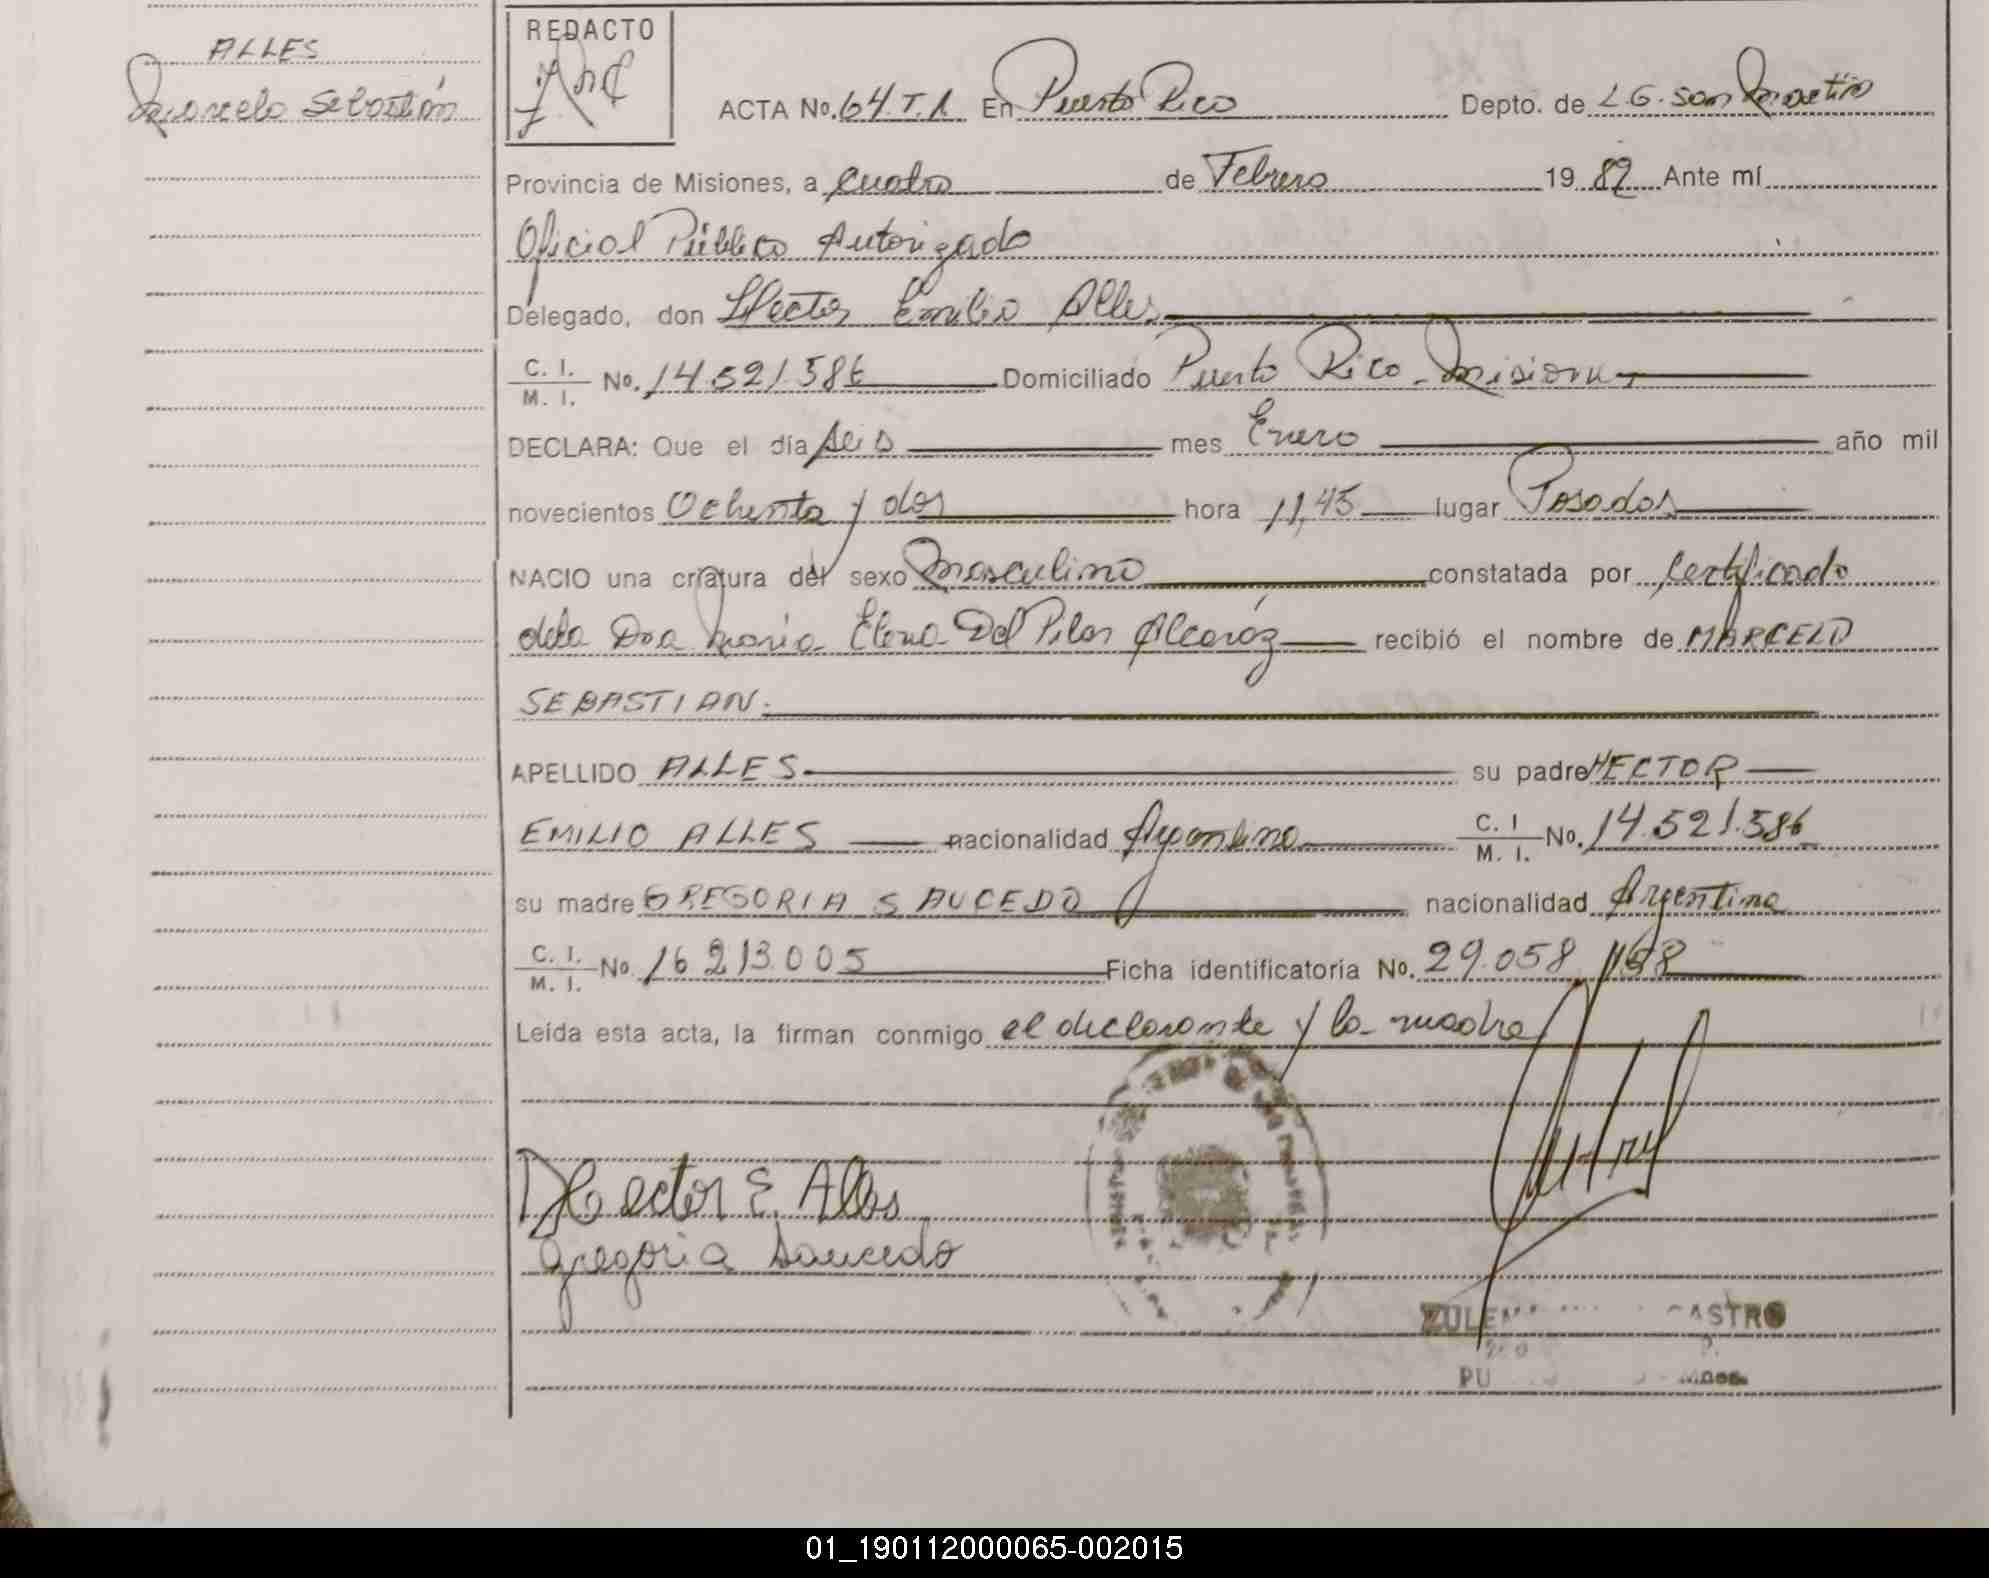 ALLES
Marcelo Sebastián
REDACTO
ACTA No. 64. T. 1 En Puerto Rico Depto. de L.G. San Martín
Provincia de Misiones, a cuatro de Febrero 19 82 Ante mí
Oficial Público Autorizado
Delegado, don Hector Emilio Alles
C. I. / M. I. No. 14.521.586 Domiciliado Puerto Rico - Misiones
DECLARA: Que el día seis mes Enero año mil
novecientos Ochenta y dos hora 11,45 lugar Posadas
NACIO una criatura del sexo masculino constatada por certificado
de la Dra María Elena Del Pilar Alcaráz recibió el nombre de MARCELO
SEBASTIAN.
APELLIDO ALLES su padre HECTOR
EMILIO ALLES nacionalidad Argentina C. I / M. I. No. 14.521.586
su madre GREGORIA SAUCEDO nacionalidad Argentina
C. I. / M. I. No. 16.213.005 Ficha identificatoria No. 29.058.168
Leída esta acta, la firman conmigo el declarante y la madre
Hector E. Alles
Gregoria Saucedo
ZULEMA CASTRO
01_190112000065-002015